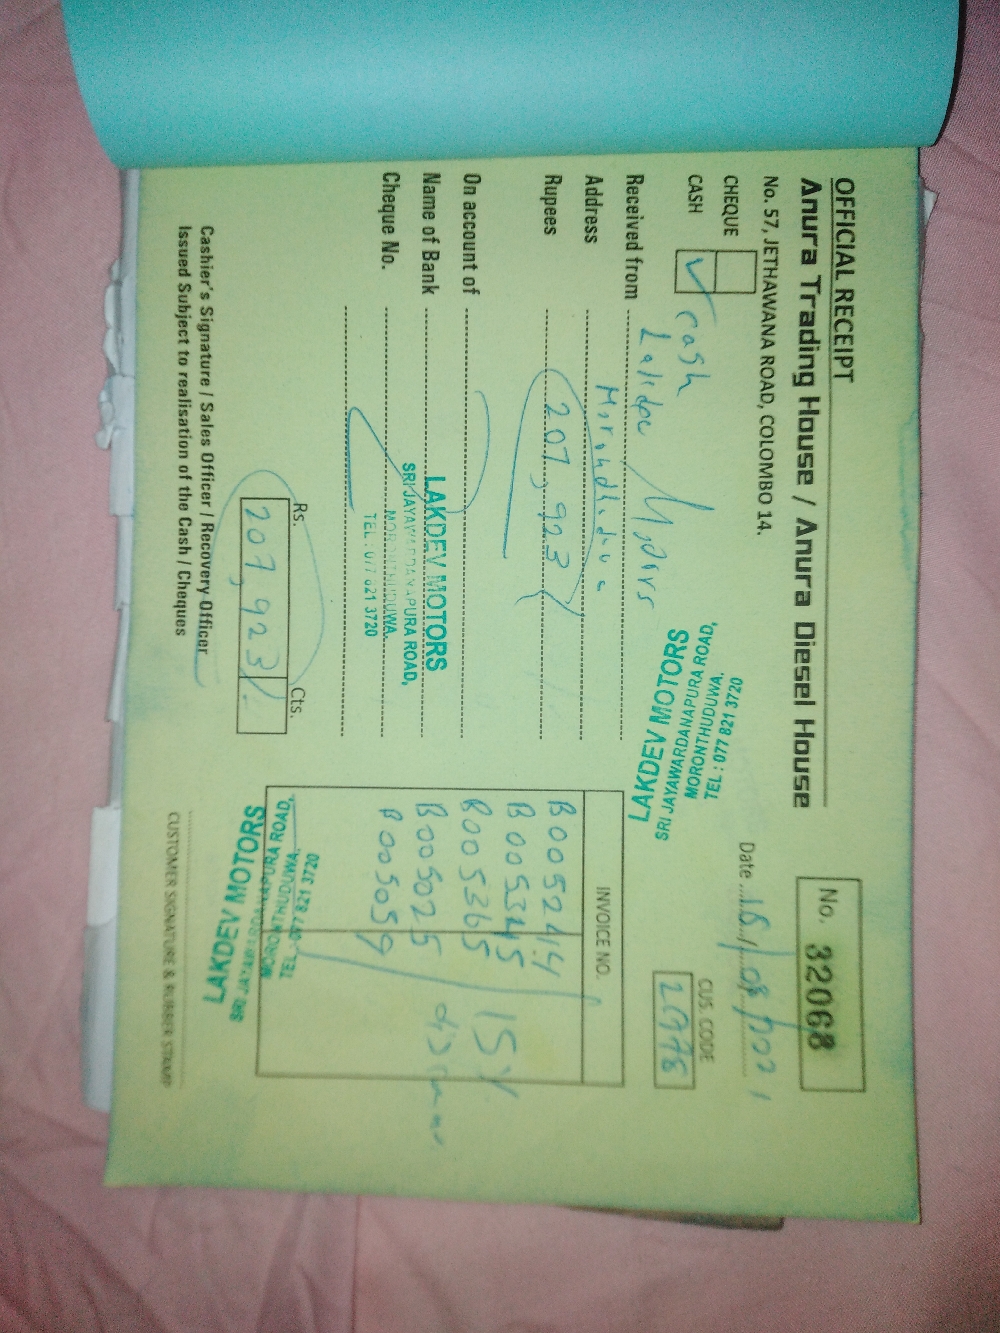 OFFICIAL RECEIPT
Anura Trading House / Anura Diesel House
No. 57, JETHAWANA ROAD, COLOMBO 14.
No. 32068
Date
CUS. CODE
CHEQUE
CASH
cash
Received from
Address
Rupees 207,923/
On account of
Name of Bank
Cheque No.
LAKDEV MOTORS
SRI JAYAWARDANAPURA ROAD,
MORONTHUDUWA.
TEL : 077 821 3720
INVOICE NO.
B005345
B005365
B005025
B005059
LAKDEV MOTORS
SRI JAYAWARDANAPURA ROAD,
MORONTHUDUWA.
TEL : 077 821 3720
Rs. Cts.
207,923/
Cashier's Signature / Sales Officer / Recovery Officer
Issued Subject to realisation of the Cash / Cheques
LAKDEV MOTORS
SRI JAYAWARDANAPURA ROAD,
MORONTHUDUWA.
TEL : 077 821 3720
CUSTOMER SIGNATURE & RUBBER STAMP